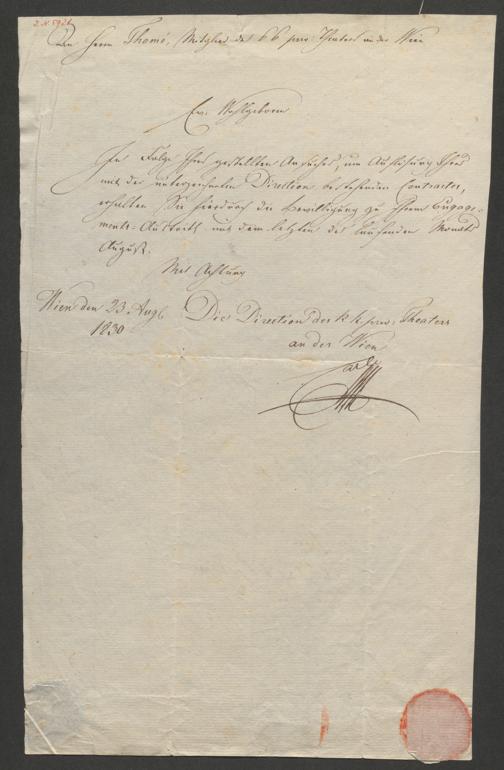 Z.N. 5926
An Herrn Thomé, Mitglied des k k priv: Theaters an der Wien
Ew. Wohlgeboren
In Folge Ihres gestellten Ansuchens, um Auflösung Ihres
mit der unterzeichneten Direction bestehenden Contractes,
erhalten Sie hierdurch die Bewilligung zu Ihrem Engage-
ments-Austritt mit dem letzten des laufenden Monats
August.
Mit Achtung
Wien den 23. Augt
1830
Die Direction des k. k. priv: Theaters
an der Wien
Carl